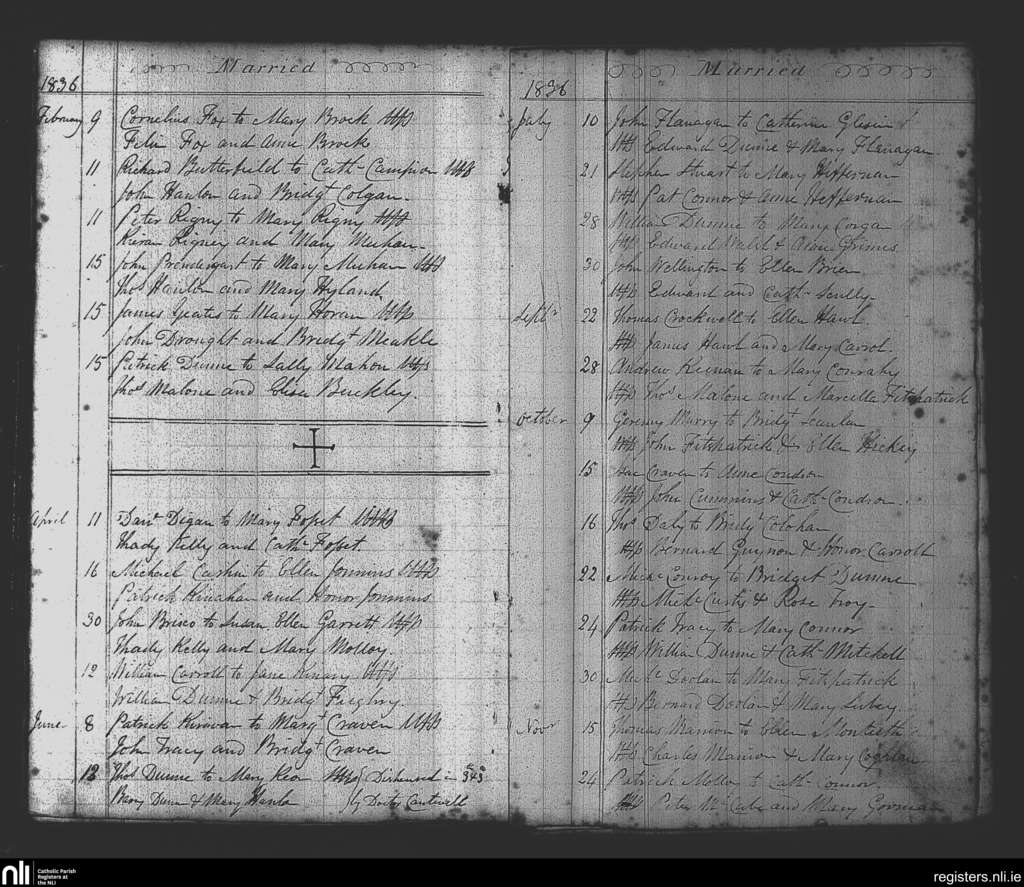 Married
1836
February 9 Cornelius Fox to Mary Brock
Felix Fox and Anne Brock
11 Richard Butterfield to Cath. Campion
John Hanlon and Bridgt Colgan
11 Peter Rigny to Mary Rigny
Kieran Rigney and Mary Meehan
15 John Prendergast to Mary Meehan
Thos Hanlon and Mary Hyland
15 James Yeates to Mary Horan
John Drought and Bridgt Meakle
15 Patrick Dunne to Sally Mahon
Thos Malone and Eliza Buckley
April 11 Danl Digan to Mary
Thady Kelly and Cath.
16 Michael Cashin to Ellen Jonnins
Patrick Kinahan and Honor Jonnins
30 John Brisco to Susan Ellen Garrett
Thady Kelly and Mary Molloy
12 William Carroll to Jane Kinary
William Dunne & Bridgt
June 8 Patrick Kirwan to Margt Craven
John Tracy and Bridgt Craven
12 Thos Dunne to Mary in
Barny Dunn & Mary by Doctr Cantwell
Married
1836
July 10 John Flanagan to Catherine
Edward Dunne & Mary Flanagan
21 Stephen Stuart to Mary Hiffernan
Pat Connor & Anne Heffernan
28 William Dunne to Mary Corgan
Edward Walsh & Grimes
30 John Wellington to Ellen Brien
Edward and Cath. Scully
Septr 22 Thomas Crockwell to Ellen Hawl
James Hawl and Mary Carrol
28 Andrew Keenan to Mary Conrahy
Thos Malone and Marcella Fitzpatrick
October 9 Geremy Murry to Bridgt Scanlan
John Fitzpatrick & Ellen Hickey
15 Isac Craven to Anne Condron
John Cummins & Cath. Condron
16 Thos Daly to Bridgt Colohan
Bernard Guynon & Honor Carroll
22 Michl Conroy to Bridget Dunne
Michl Curtis & Rose Troy
24 Patrick Tracy to Mary Connor
William Dunne & Cath. Mitchell
30 Michl Doolan to Mary Fitzpatrick
Bernard Doolan & Mary
Novr 15 Thomas Manion to Ellen Monteith
Charles Manion & Mary Coghlan
24 Patrick Molloy to Cath. Connor
Peter McCabe and Mary Gorman
nli
Catholic Parish
Registers at
the NLI
registers.nli.ie